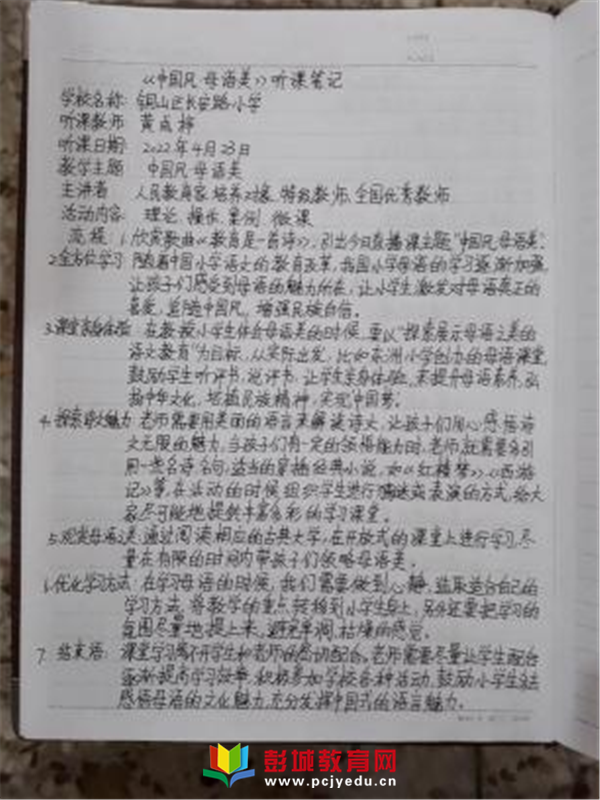 《中国风 母语美》听课笔记
学校名称: 铜山区长安路小学
听课教师 黄
听课日期: 2022年4月23日
教学主题 中国风母语美
主讲者 人民教育家培养对象、特级教师、全国优秀教师
活动内容: 理论 案例 微课
流程: 1.欣赏歌曲《教育是一首诗》,引出今日直播课主题“中国风母语美”。
2.全方位学习 随着中国小学语文的教育改革,我国小学母语的学习逐渐加强,
让孩子们感受到母语的魅力所在,让小学生激发对母语真正的
喜爱,追随中国风,增强民族自信。
3.课堂亲身体验: 在教授小学生体会母语美的时候,要以“探索展示母语之美的
语文教育”为目标,从实际出发,比如东洲小学创办的母语课堂,
鼓励学生听评书,说评书,让学生亲身体验,来提升母语素养,弘
扬中华文化,培植民族精神,实现中国梦。
4.探索语文魅力: 老师需要用美丽的语言来解读诗文,让孩子们用心感悟语
文无限的魅力,当孩子们有一定的领悟能力时,老师就需要多引
用一些名诗名句,适当的穿插经典小说,如《红楼梦》,《西游
记》等,在活动的时候组织学生进行描述或表演的方式,给大
家尽可能地提供丰富多彩的学习课堂。
5.观赏母语之美:通过阅读相应的古典大学,在开放式的课堂上进行学习,尽
量在有限的时间内带孩子们领略母语美。
6.优化学习方式: 在学习母语的时候,我们需要做到心静,选取适合自己的
学习方式,将教学的重点转移到小学生身上,另外还要把学习的
氛围尽量地提上来,避免单调,枯燥的感觉。
7.结束语: 课堂学习离不开学生和老师的密切配合,老师需要尽量让学生配合
逐渐提高学习效率,积极参加学校各种活动,鼓励小学生去
感悟母语的文化魅力,充分发挥中国式的语言魅力。
彭城教育网
www.pcjyedu.cn